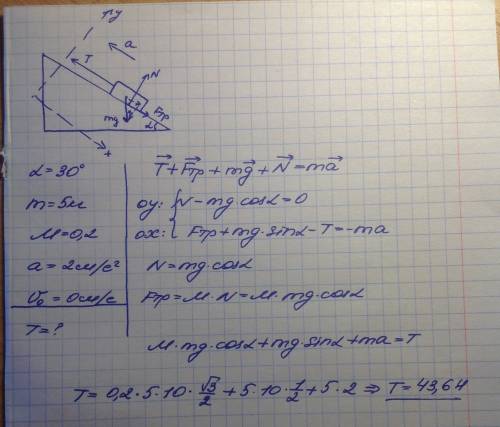 y
a
T
N
Fтр
mg
α
x
α=30°
m=5кг
μ=0,2
a=2м/с²
υ₀=0м/с
T=?
T⃗+F⃗тр+mg⃗+N⃗=ma⃗
oy: { N-mg·cosα=0
ox: { Fтр+mg·sinα-T=-ma
N=mg·cosα
Fтр=μ·N=μ·mg·cosα
μ·mg·cosα+mg·sinα+ma=T
T=0,2·5·10·√3/2+5·10·1/2+5·2 ⇒ T=43,64